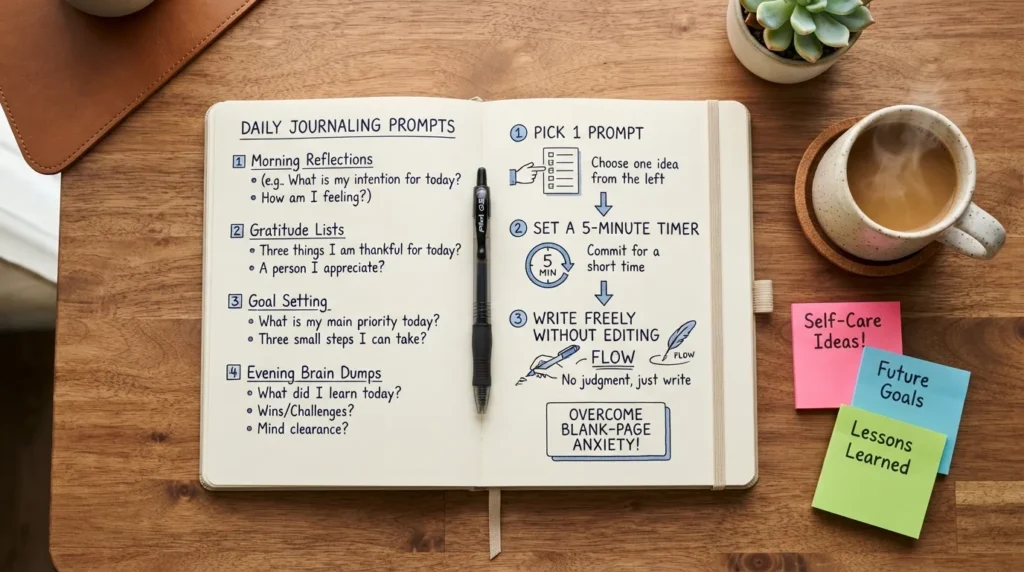 DAILY JOURNALING PROMPTS
1 Morning Reflections
• (e.g. What is my intention for today?
• How am I feeling?)
2 Gratitude Lists
• Three things I am thankful for today?
• A person I appreciate?
3 Goal Setting
• What is my main priority today?
• Three small steps I can take?
4 Evening Brain Dumps
• What did I learn today?
• Wins/Challenges?
• Mind clearance?
Pilot G2
1 PICK 1 PROMPT
Choose one idea
from the left
2 SET A 5-MINUTE TIMER
5
MIN
Commit for a
short time
3 WRITE FREELY
WITHOUT EDITING
FLOW
FLOW
No judgment, just write
OVERCOME
BLANK-PAGE
ANXIETY!
Self-Care
Ideas!
Future
Goals
Lessons
Learned